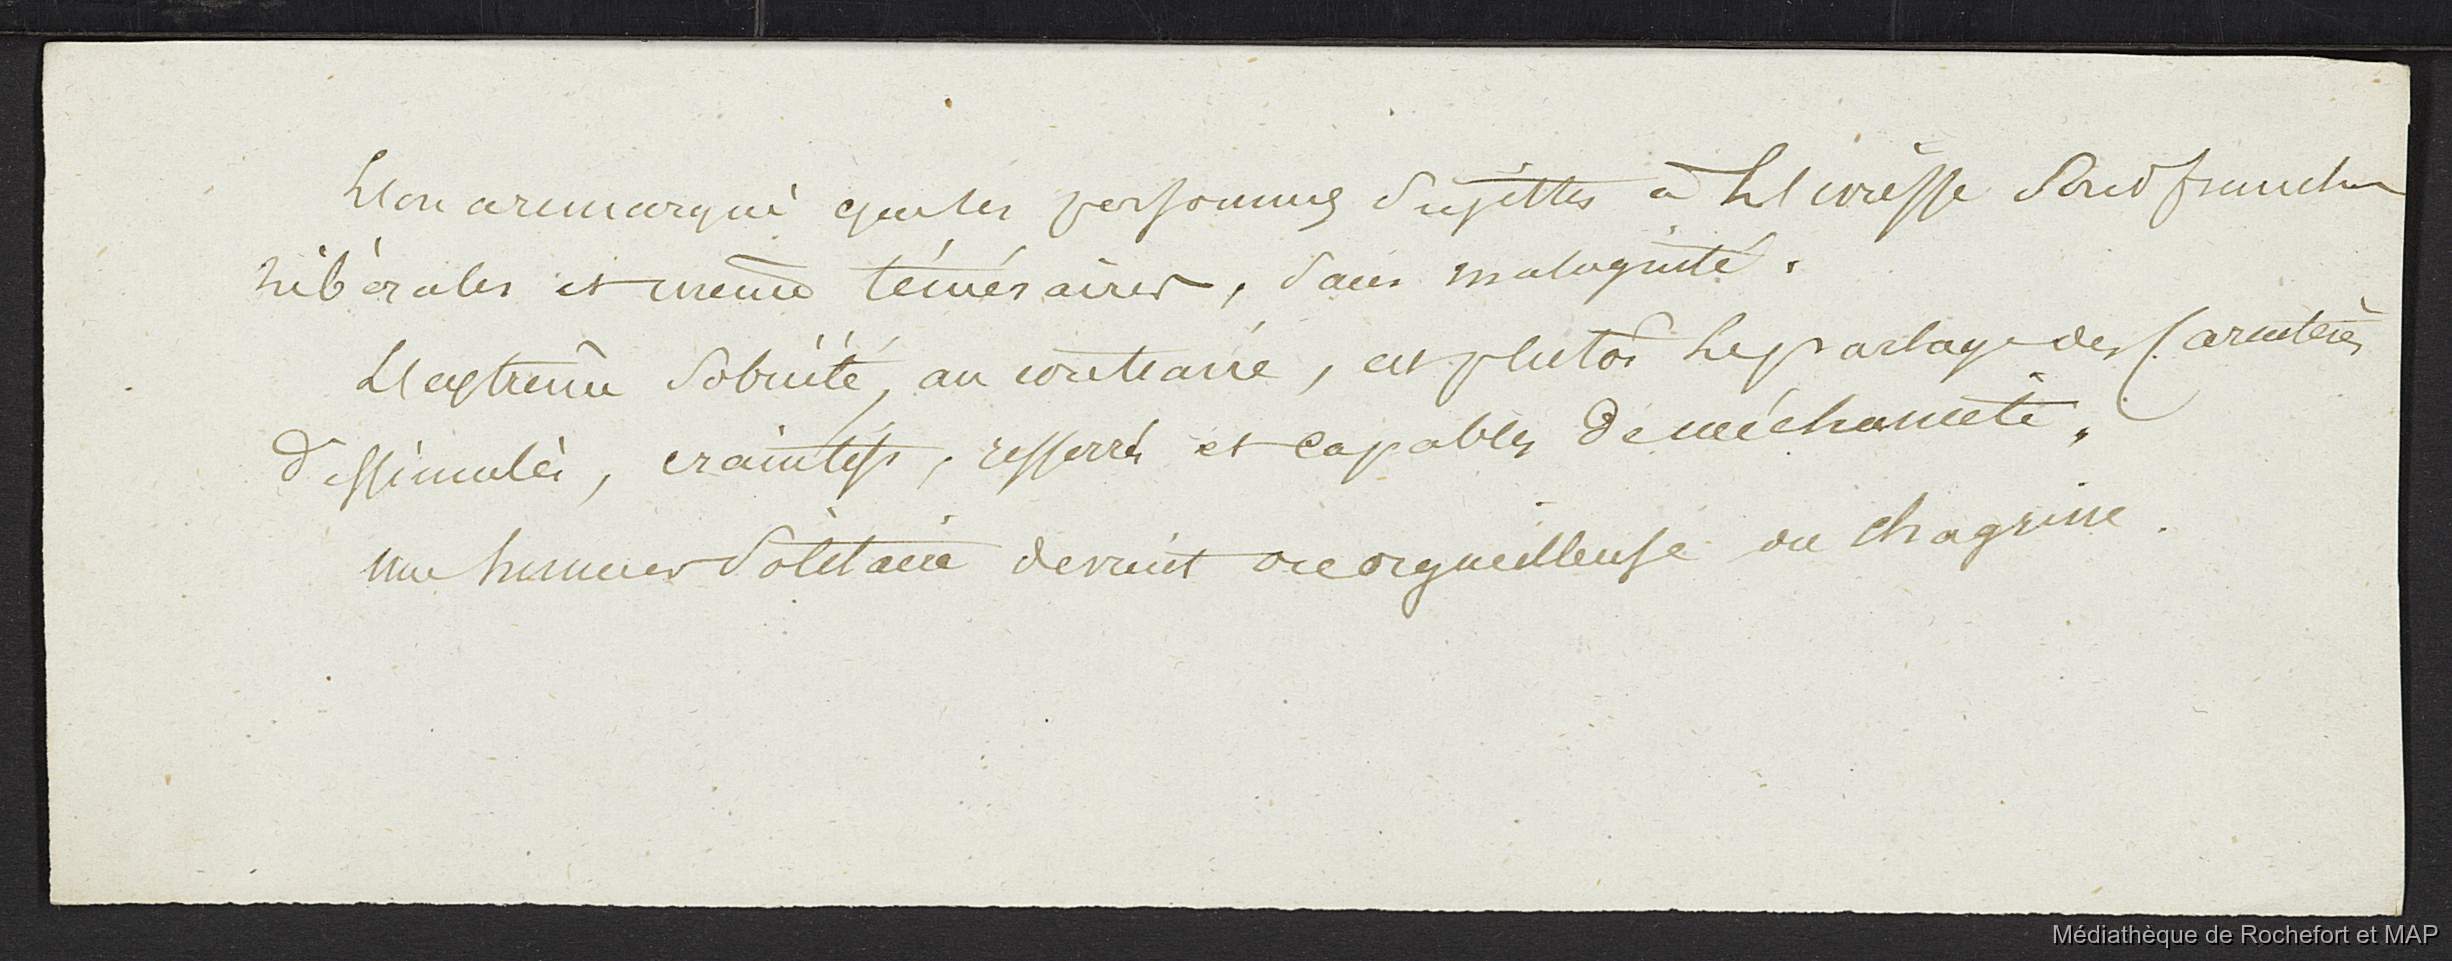 L'on a remarqué que les personnes sujettes à l'ivresse sont franches
libérales et même téméraires, sans malignité.
L'extrême sobriété, au contraire, est plutôt le partage des Caractères
dissimulés, craintifs, resserrés et capables de méchanceté.
une humeur solitaire devient ou orgueilleuse ou chagrine.
Médiathèque de Rochefort et MAP